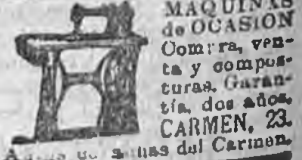 MAQUINAS
de OCASION
Compra, ven-
ta y compos-
turas. Garan-
tía, dos años.
CARMEN, 23.
del Carmen.